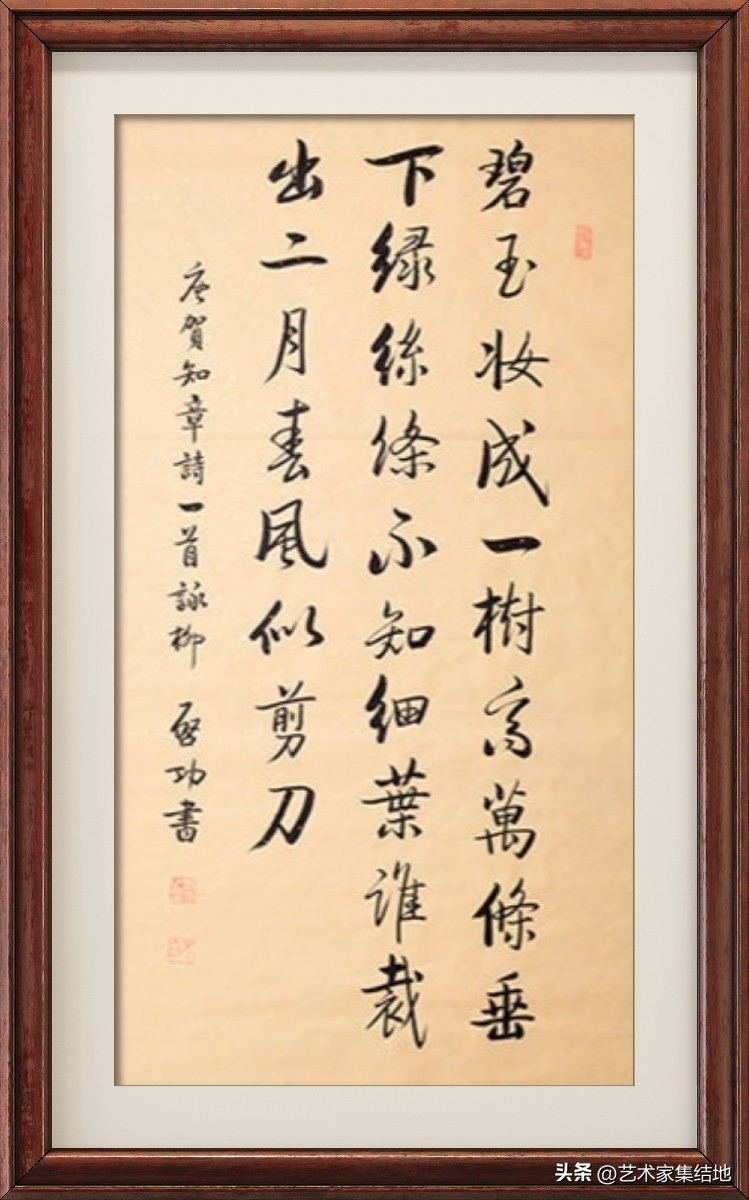 碧玉妆成一樹高萬條垂
下緑絲絛不知細葉誰裁
出二月春風似剪刀
唐賀知章詩一首詠柳 啓功書
头条 @艺术家集结地